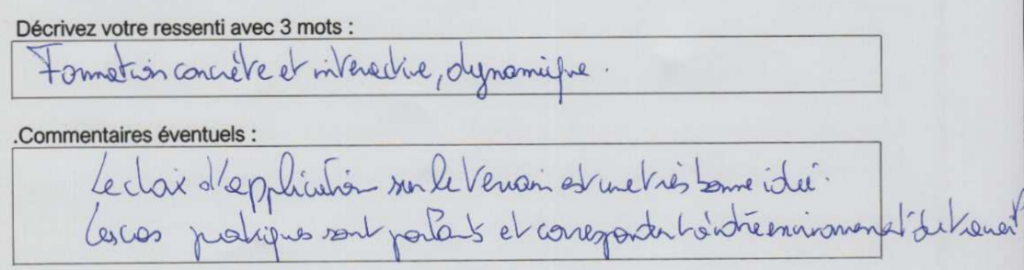 Décrivez votre ressenti avec 3 mots :
Formation concrète et interactive, dynamique.
.Commentaires éventuels :
Le choix d'application sur le terrain est une très bonne idée.
Les cas pratiques sont parlants et correspondent à notre environnement de travail